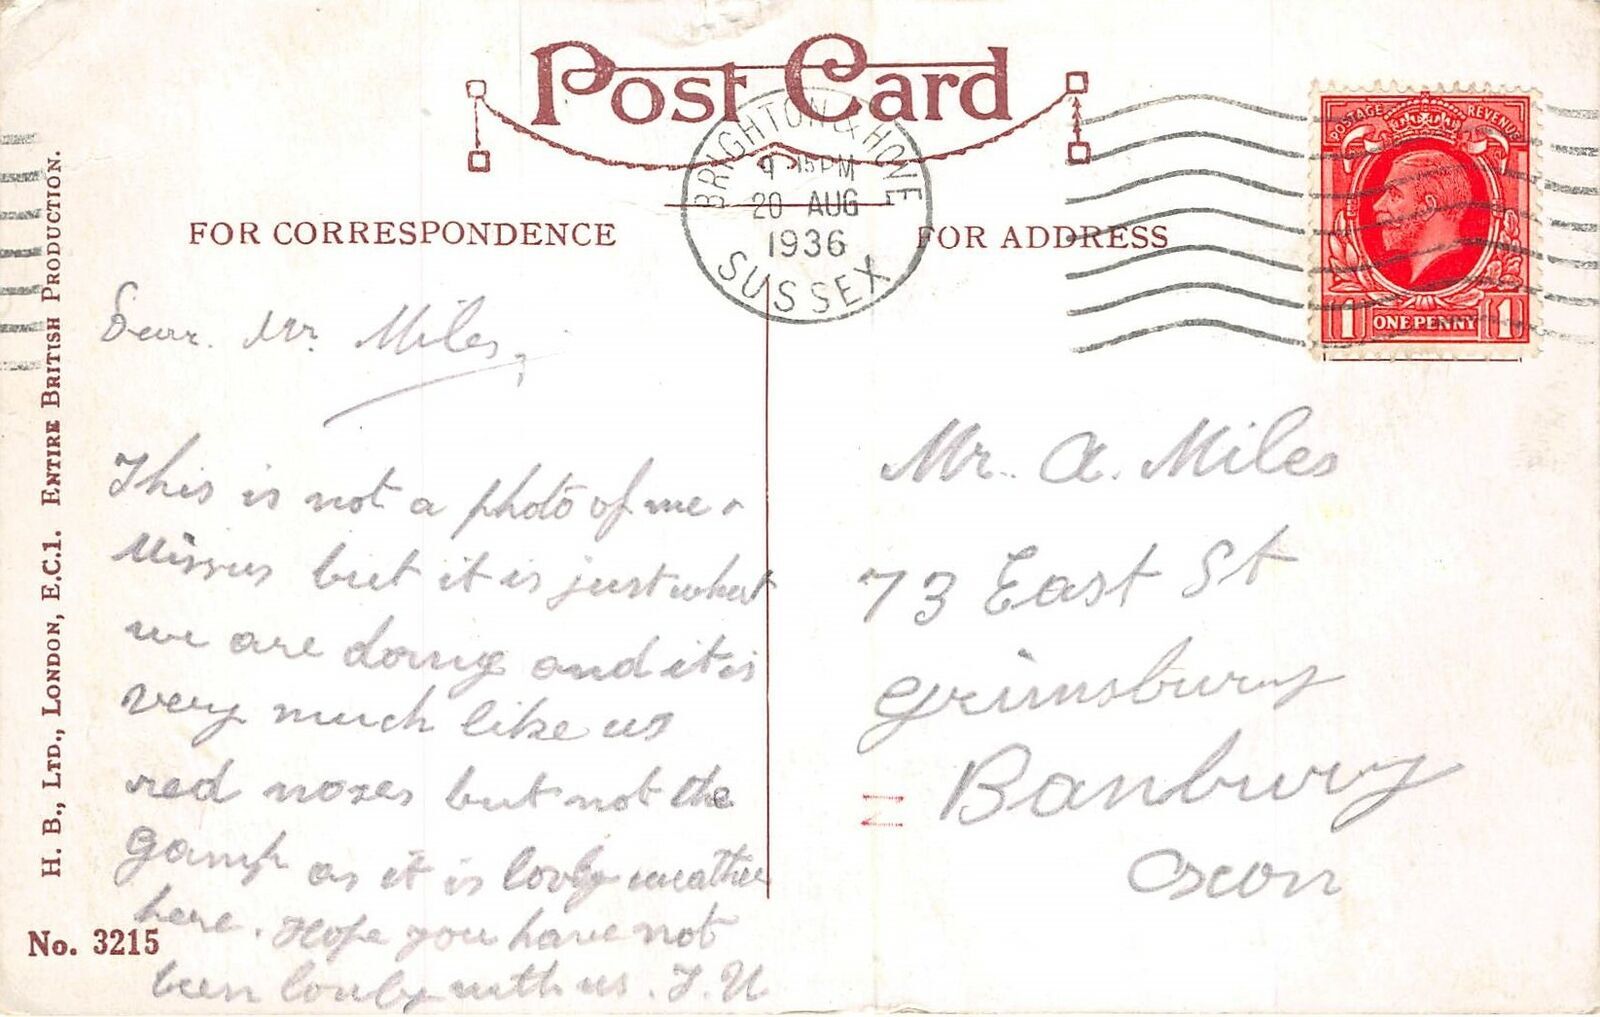 Post Card
BRIGHTON & HOVE
9 15 PM
20 AUG
1936
SUSSEX
POSTAGE REVENUE
1 ONE PENNY 1
FOR CORRESPONDENCE
FOR ADDRESS
H. B., LTD., LONDON, E.C.1. ENTIRE BRITISH PRODUCTION.
No. 3215
Dear Mr. Miles,
This is not a photo of me &
Missus but it is just what
we are doing and it is
very much like us
red noses but not the
gamp as it is lovly weather
here. Hope you have not
been lonly with us. J. U
Mr. A. Miles
73 East St
Grimsbury
Banbury
Oxon